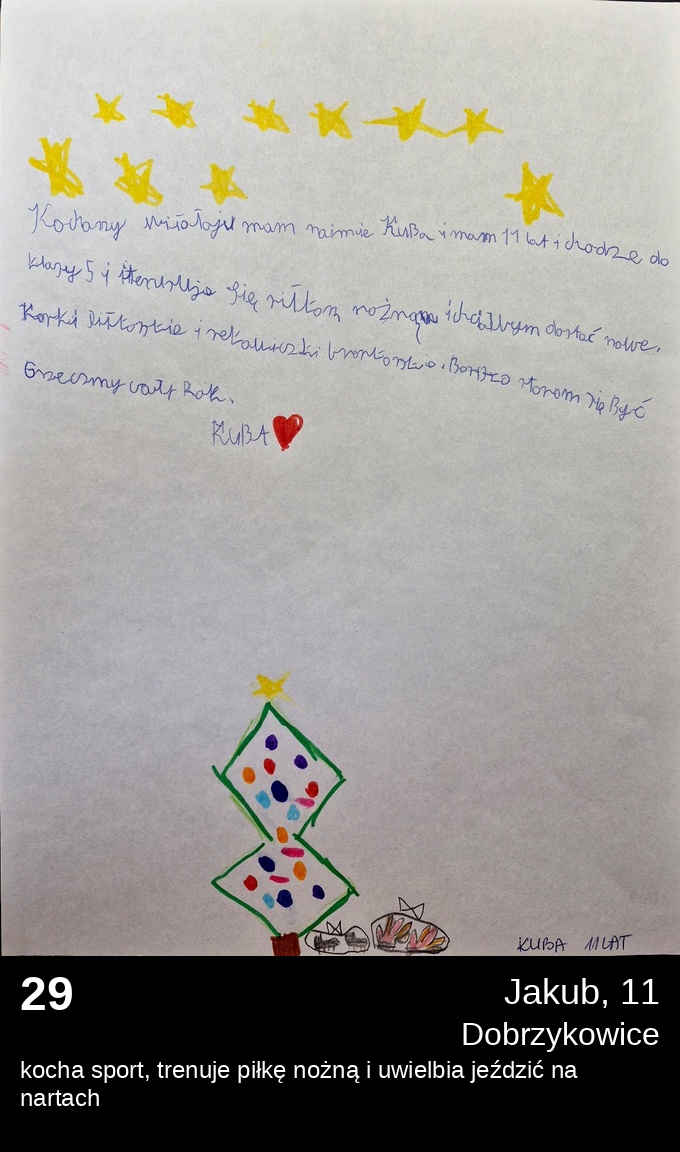 Kochany mikołaju mam naimie KuBa i mam 11 lat i chodzę do
klasy 5 i się nożną i chciałbym dostać nowe.
Korki i bramkarskie. Bardzo staram się Być
Grzeczny cały Rok.
KUBA
KUBA 11 LAT
29
Jakub, 11
Dobrzykowice
kocha sport, trenuje piłkę nożną i uwielbia jeździć na
nartach